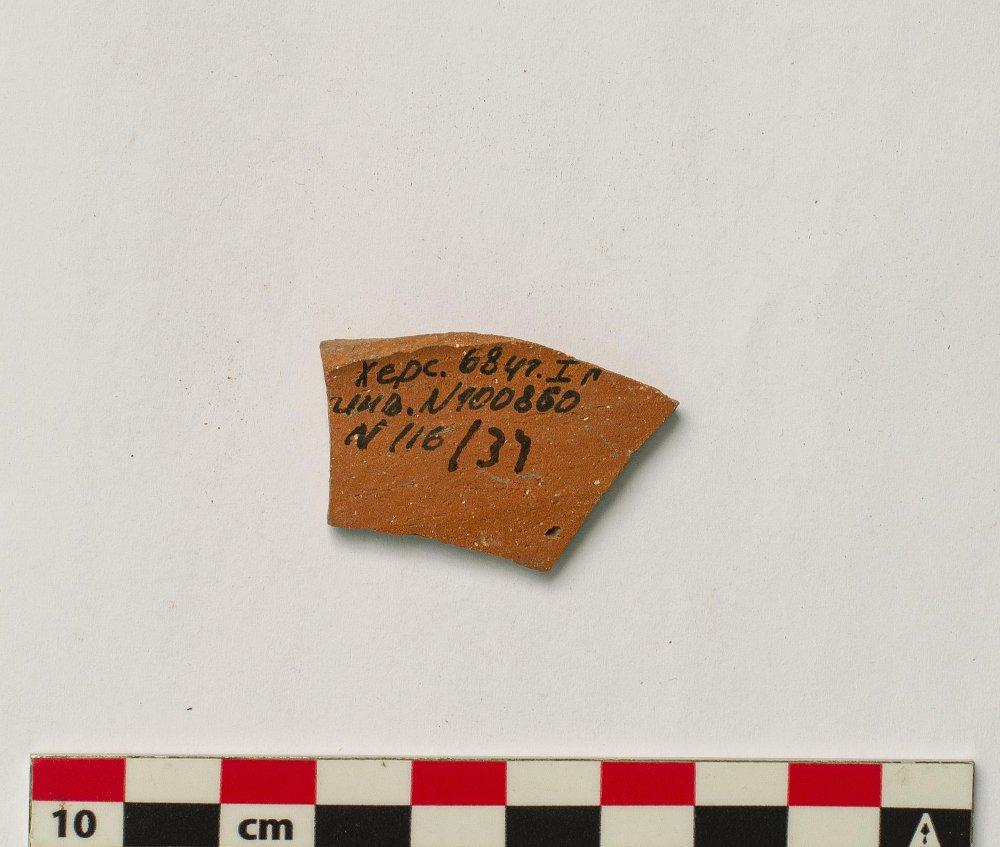 Херс. 684г. I п
инв. N 100860
N 116/37
10 cm